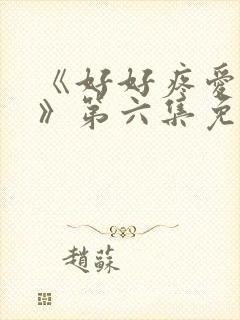 《好好疼爱
》第六集免
趙蘇